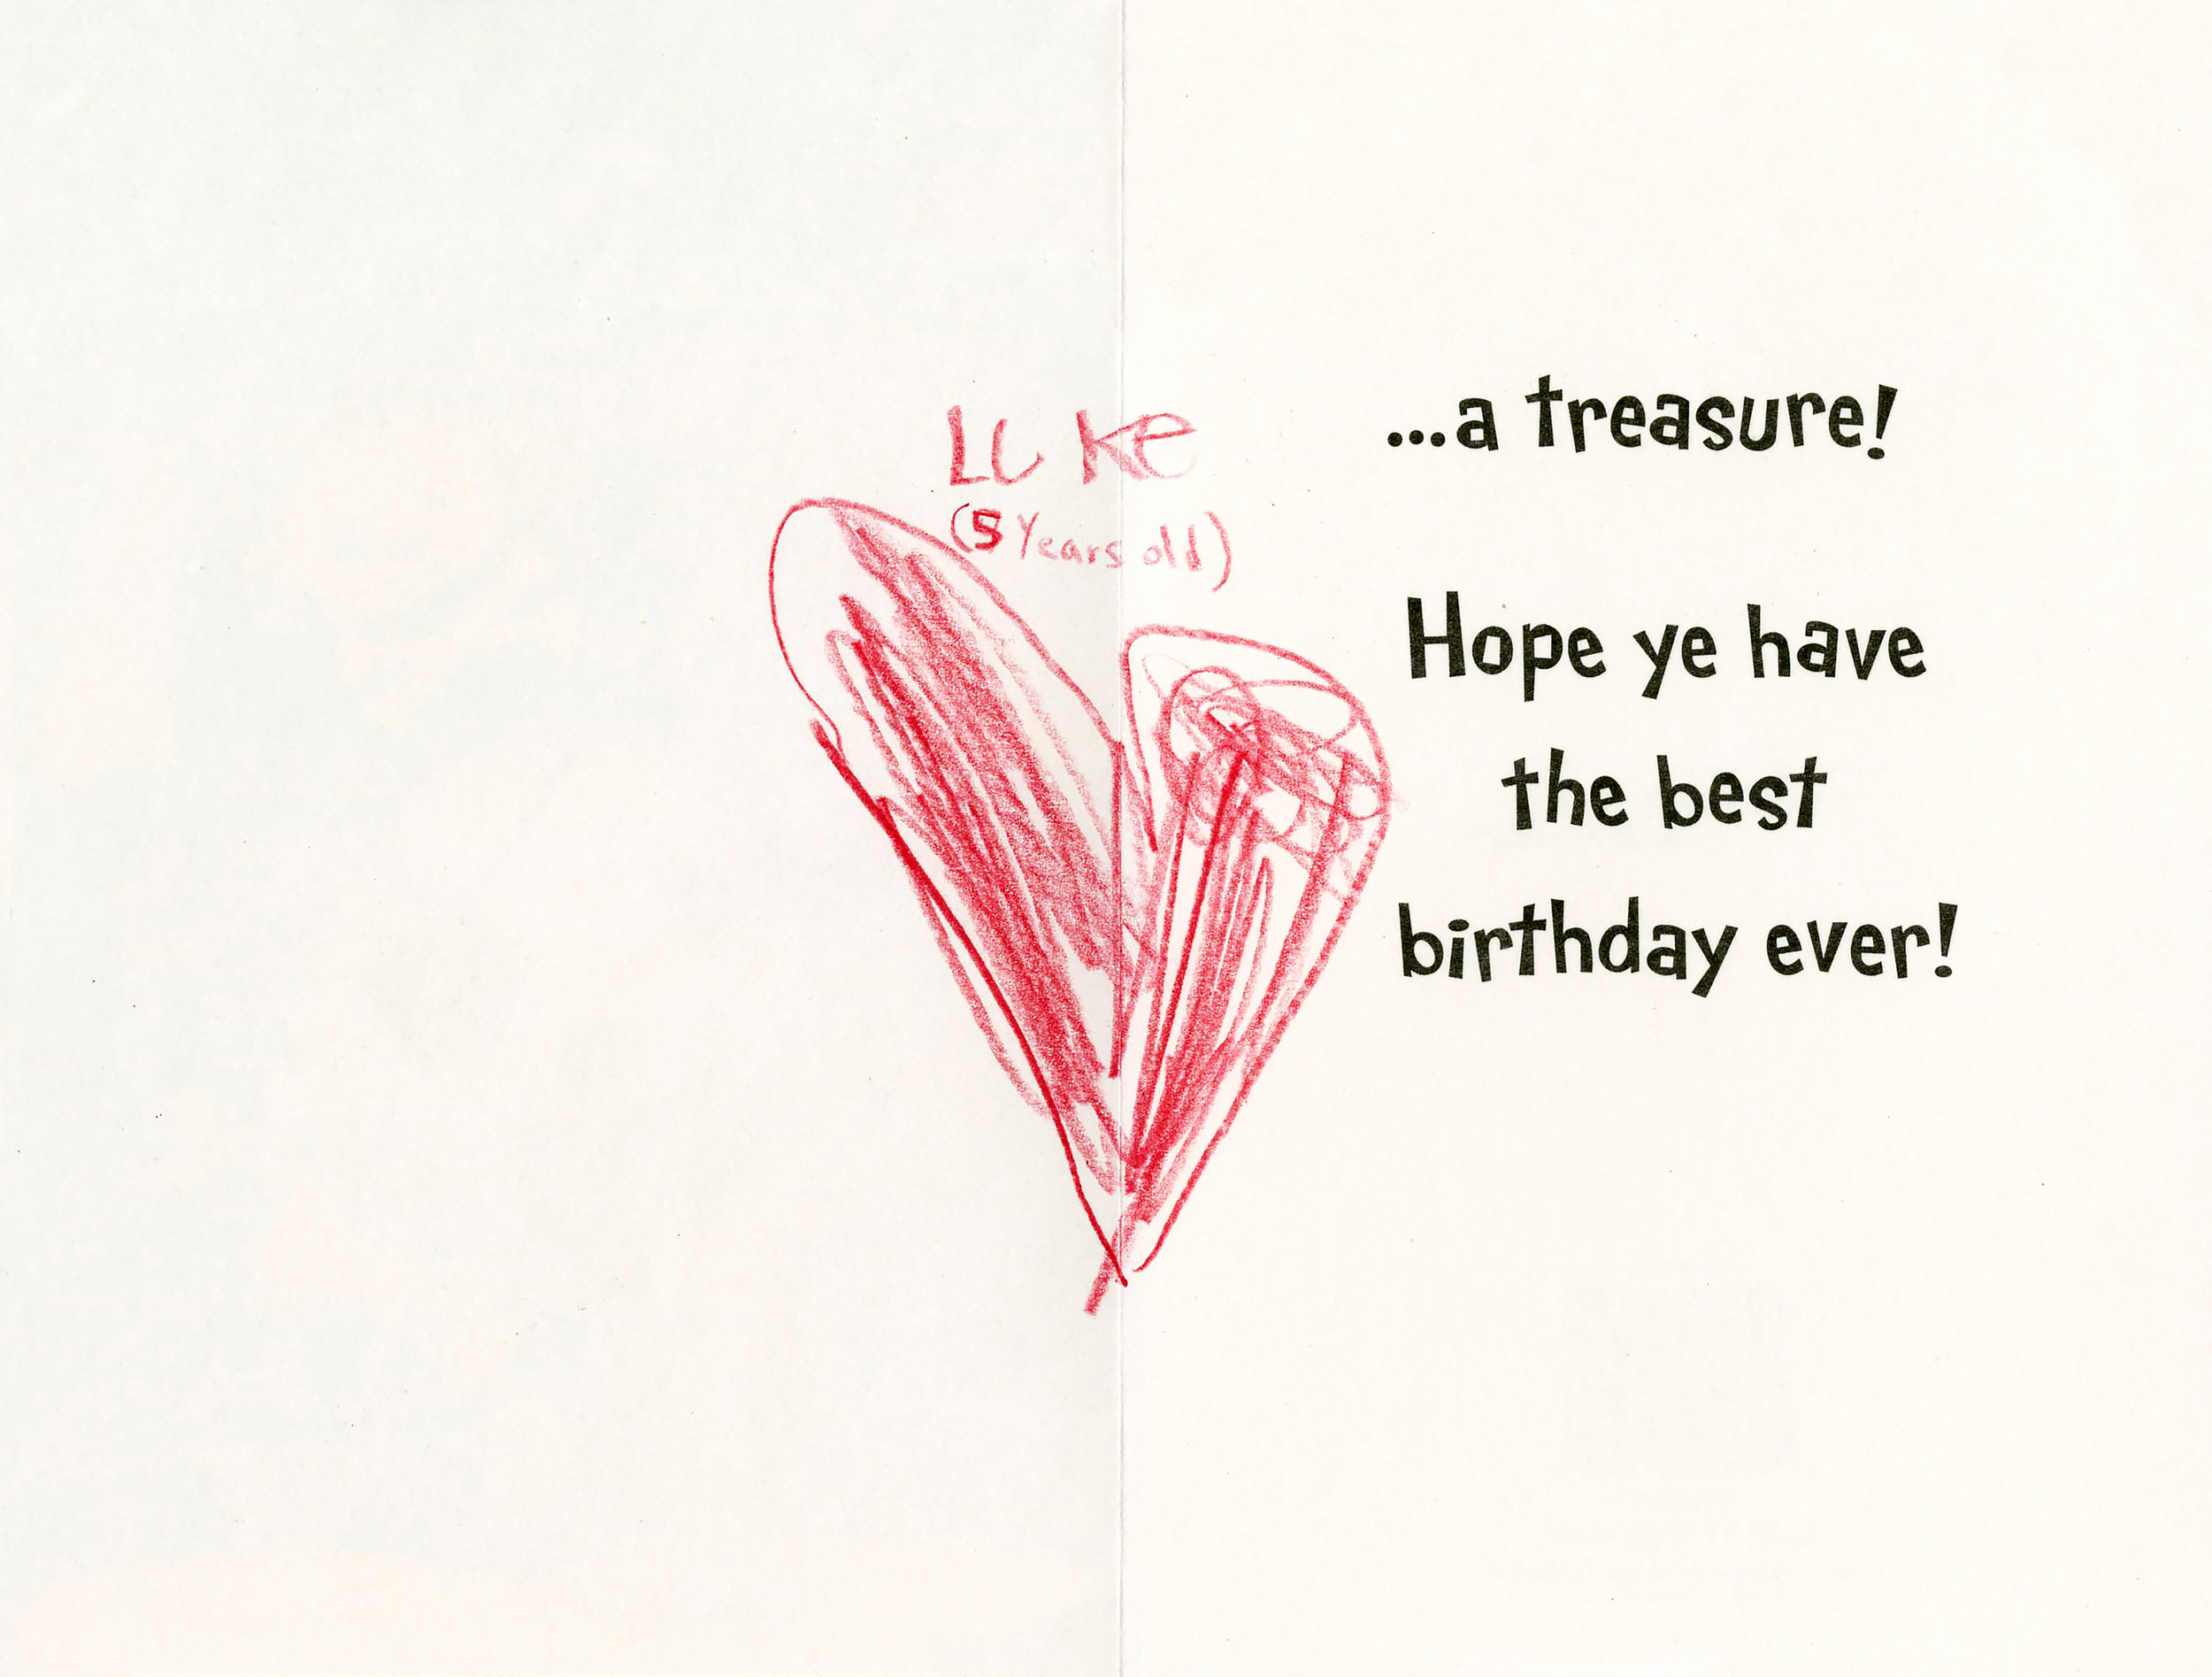 LUKe
(5 Years old)
...a treasure!
Hope ye have
the best
birthday ever!